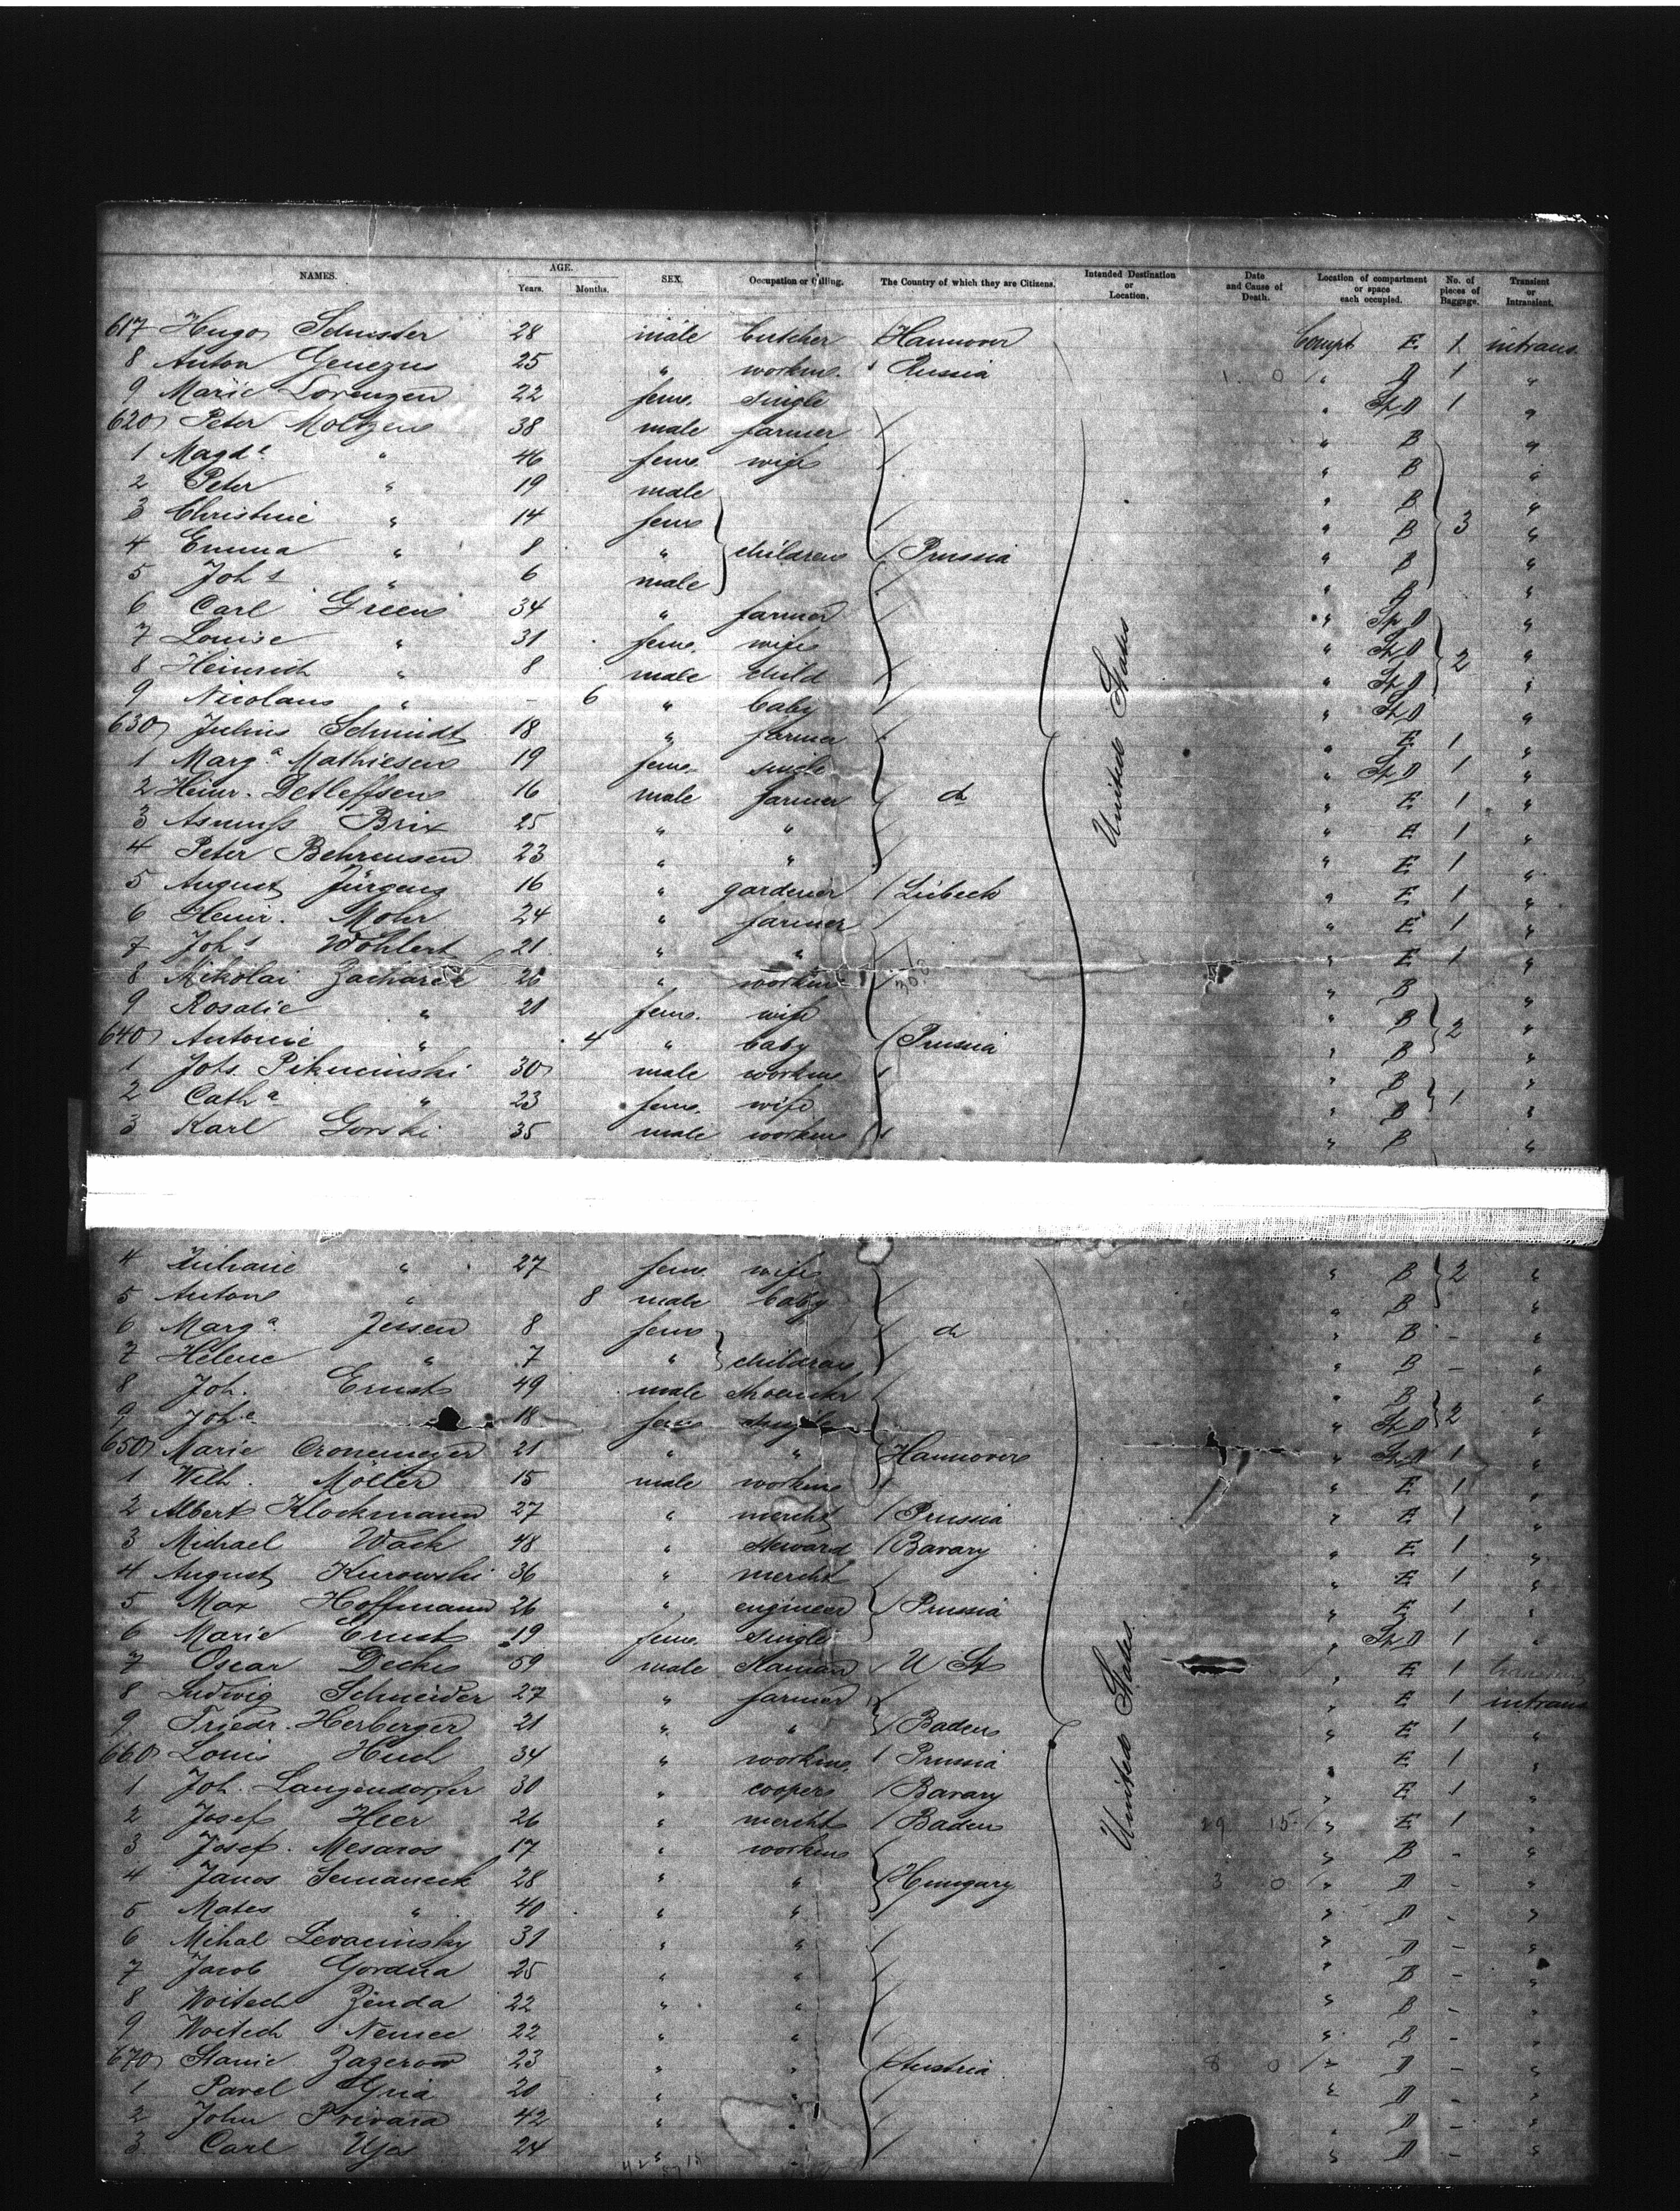 NAMES. AGE. Years. Months. SEX. Occupation or Calling. The Country of which they are Citizens. Intended Destination or Location. Date and Cause of Death. Location of compartment or space each occupied. No. of pieces of Baggage. Transient or Intransient.
617 Hugo Schuster 28 male butcher Hannover Compt E 1 intrans
8 Anton 25 " workm. Russia " D 1 "
9 Marie Lorenzen 22 fem. single " St D 1 "
620 Peter Moltzen 38 male farmer " B "
1 Magd.a " 46 fem. wife " B "
2 Peter " 19 male " B "
3 Christine " 14 fem " B 3 "
4 Emma " 8 " children Prussia " B "
5 Joh.s " 6 male " B "
6 Carl Green 34 " farmer " St D "
7 Louise " 31 fem. wife " St D 2 "
8 Heinrich " 8 male child " St D "
9 Nicolaus " - 6 " baby " St D "
630 Julius Schmidt 18 " farmer " E 1 "
1 Marg.a Mathiesen 19 fem. single " St D 1 "
2 Heinr. Detleffsen 16 male farmer do " E 1 "
3 Asmuss Brix 25 " " " E 1 "
4 Peter Behrensen 23 " " " E 1 "
5 August Jürgens 16 " gardener Lübeck " E 1 "
6 Heinr. Mohr 24 " farmer " E 1 "
7 Joh.s Wohlert 21 " " " E 1 "
8 Nikolai 26 " workm " B "
9 Rosalie " 21 fem. wife " B 2 "
640 Antonie " 4 " baby Prussia " B "
1 Johs. 30 male workm " B 1 "
2 Cath.a " 23 fem. wife " B "
3 Karl Gorski 35 male workm " B "
United States
4 " 27 fem wife " B 2 "
5 Anton " 8 male baby " B "
6 Marg.a Jessen 8 fem do " B - "
7 Helene " 7 " children " B - "
8 Joh. Ernst 49 male " B 2 "
9 Joh.e 18 fem single " St D "
650 Marie Cronemeyer 21 " " Hannover " St D 1 "
1 Wilh. Möller 15 male workm " E 1 "
2 Albert Klockmann 27 " mercht Prussia " E 1 "
3 Michael Wack 48 " steward Bavary " E 1 "
4 August Kurowski 36 " mercht " E 1 "
5 Max Hoffmann 26 " engineer Prussia " E 1 "
6 Marie Ernst 19 fem. single " St D 1 "
7 Oscar 59 male U St " E 1
8 Ludwig Schneider 27 " farmer " E 1 intrans
9 Friedr. Herberger 21 " " Baden " E 1 "
660 Louis 34 " workm. Prussia " E 1 "
1 Joh. Langendorfer 30 " cooper Bavary " E 1 "
2 Josef Heer 26 " mercht Baden 19 15 " E 1 "
3 Josef Mesaros 17 " workm " B - "
4 Janos Semaneck 28 " " Hungary 3 0 " D - "
5 Mates " 40 " " " D - "
6 Mihal Levacinsky 31 " " " D - "
7 Jacob 25 " " " B - "
8 Woitech Zenda 22 " " " B - "
9 Woitech Nemec 22 " " " B - "
670 23 " " Austria 8 0 " D - "
1 Pavel 20 " " " D - "
2 John Privara 42 " " " D - "
3 Carl 24 " " " D - "
United States